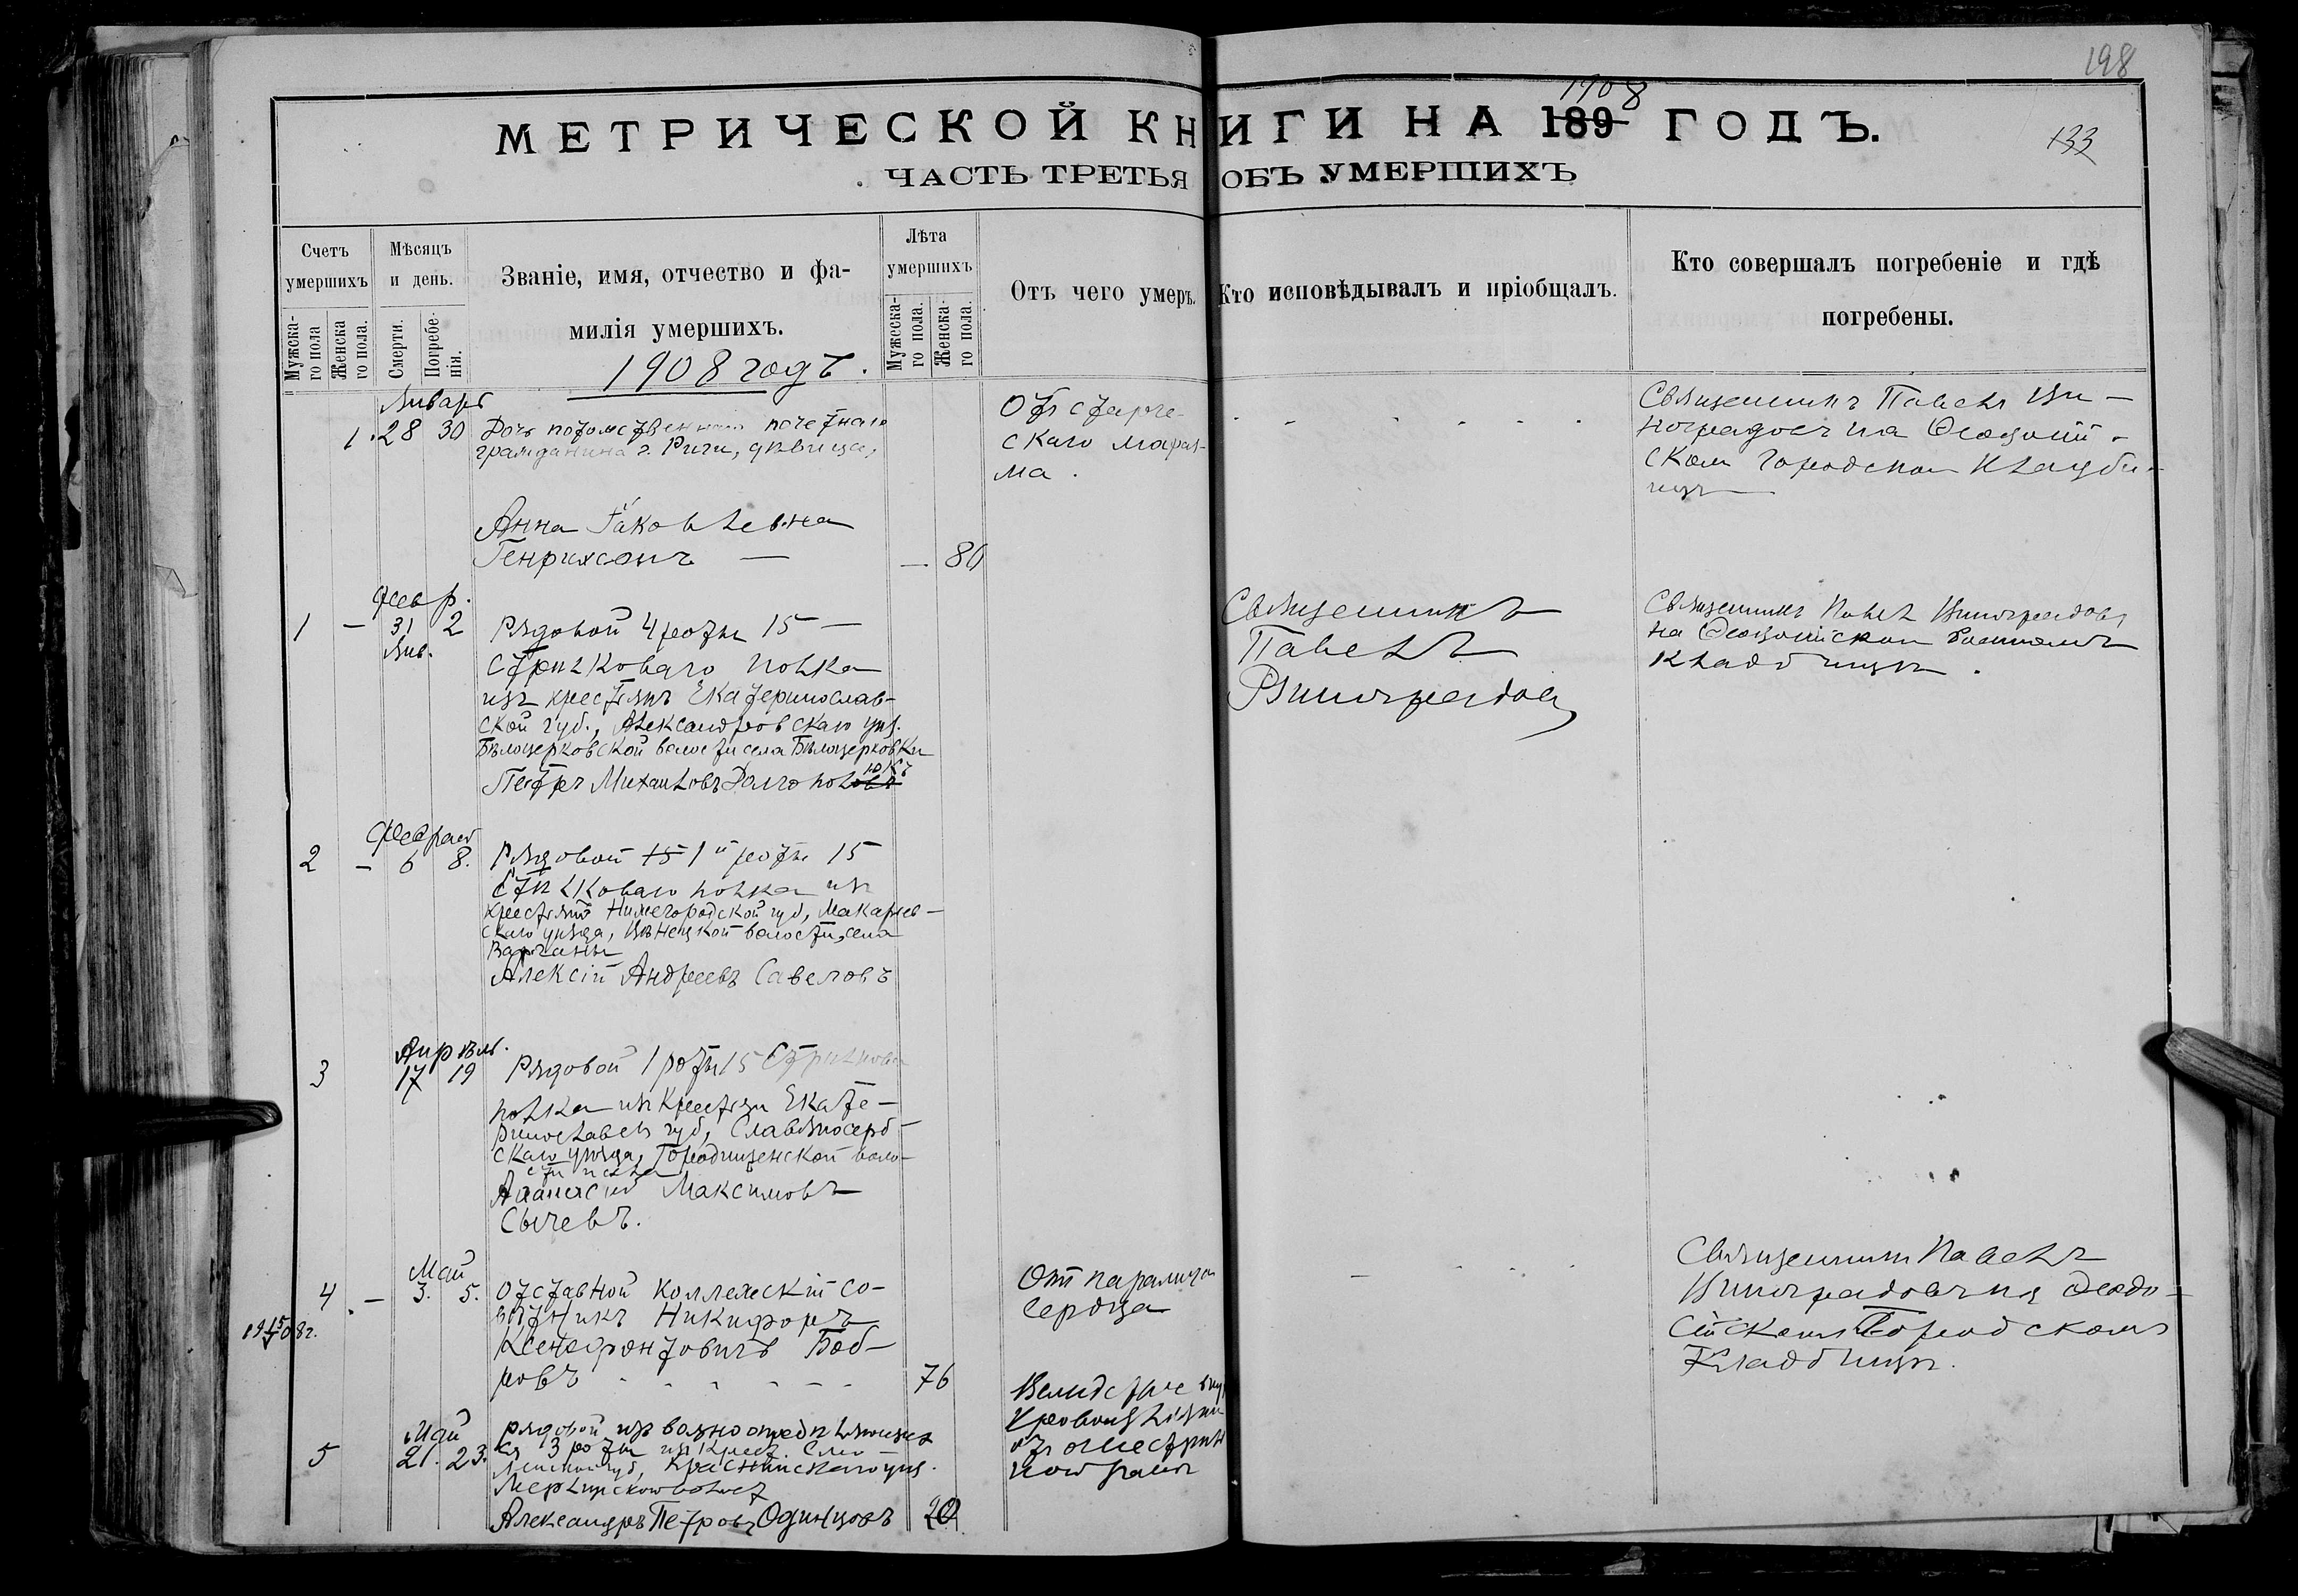 198
1908
МЕТРИЧЕСКОЙ КНИГИ НА 189 ГОДЪ.
133
ЧАСТЬ ТРЕТЬЯ ОБЪ УМЕРШИХЪ
Счетъ умершихъ
Мужскаго пола
Женскаго пола.
Мѣсяцъ и день.
Смерти.
Погребенія.
Званіе, имя, отчество и фа-
милія умершихъ.
1908 годъ.
Лѣта умершихъ
Мужескаго пола.
Женскаго пола.
Отъ чего умеръ.
Кто исповѣдывалъ и пріобщалъ.
Кто совершалъ погребеніе и гдѣ
погребены.
Январь
1. 28 30
Дочь потомственнаго почетнаго
гражданина г. Риги, дѣвица,
Анна Яковлевна
Генрихсонъ — — 80
Отъ старче-
скаго мараз-
ма.
Священникъ Павелъ Ви-
ноградовъ на Ѳеодосій-
скомъ городском кладби-
щѣ
Февр.
1 — 31 2
Янв.
Рядовой 4 роты 15 —
стрѣлковаго полка
изъ крестьянъ Екатеринослав-
ской губ., Александровскаго уѣз.
Бѣлоцерковской волости села Бѣлоцерковки
Петръ Михаиловъ Долгополовъ
юкъ
Священникъ
Павелъ
Виноградовъ
Священникъ Павелъ Виноградовъ
на Ѳеодосійском
кладбищѣ.
Февраль
2 — 6 8.
Рядовой 15 1й роты 15
стрѣлковаго полка изъ
крестьянъ Нижегородской губ, Макарьев-
скаго уѣзда, волости, села
Варганы
Алексій Андреевъ Савеловъ
Апрѣль.
3 17 19
Рядовой 1 роты 15 Стрѣлковаго
полка изъ крестьян Екате-
ринославск губ, Славяносерб-
скаго уѣзда, Городищенской воло-
сти и села
Афанасій Максимовъ
Сычевъ.
Май
4. — 3. 5.
1908г.
Отставной Коллежскій со-
вѣтникъ Никифоръ
Ксенофонтовичъ Боб-
ровъ - - - - - 76
Отъ паралича
сердца
Священникъ Павелъ
Виноградовъ на Ѳеодо-
сійскомъ Городскомъ
Кладбищѣ.
Май
5 21. 23.
рядовой изъ вольноопредѣляющих
ся 3 роты изъ крест. Смо-
ленской губ, Краснинскаго уѣз.
Александръ Петровъ Одинцовъ 20
Вслѣдствіе